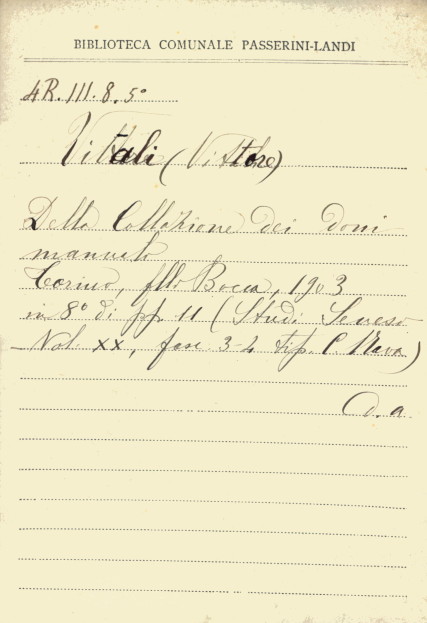 BIBLIOTECA COMUNALE PASSERINI-LANDI
4R.III.8.5°
Vitali (Vittore)
Della Collazione dei doni
manuali
Torino, flli Bocca, 1903
in 8° di pp. 11 (Studi Senesi
Vol. XX, fasc 3-4 tip. C Nava)
d. a.